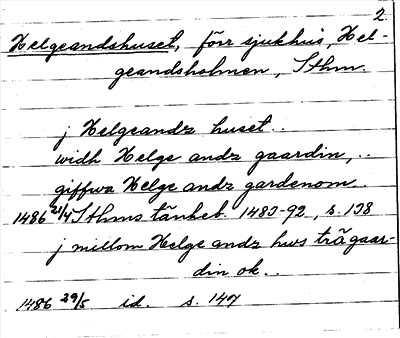 2.
Helgeandshuset, förr sjukhus, Hel-
geandsholmen, Sthm.
j Helgeandz huset..
widh Helge andz gaardin,..
giffwa Helge andz gardenom..
1486 21/4 Sthms tänkeb. 1483-92, s. 138
j millom Helge andz hws trägaar-
din ok..
1486 29/5 id. s. 147